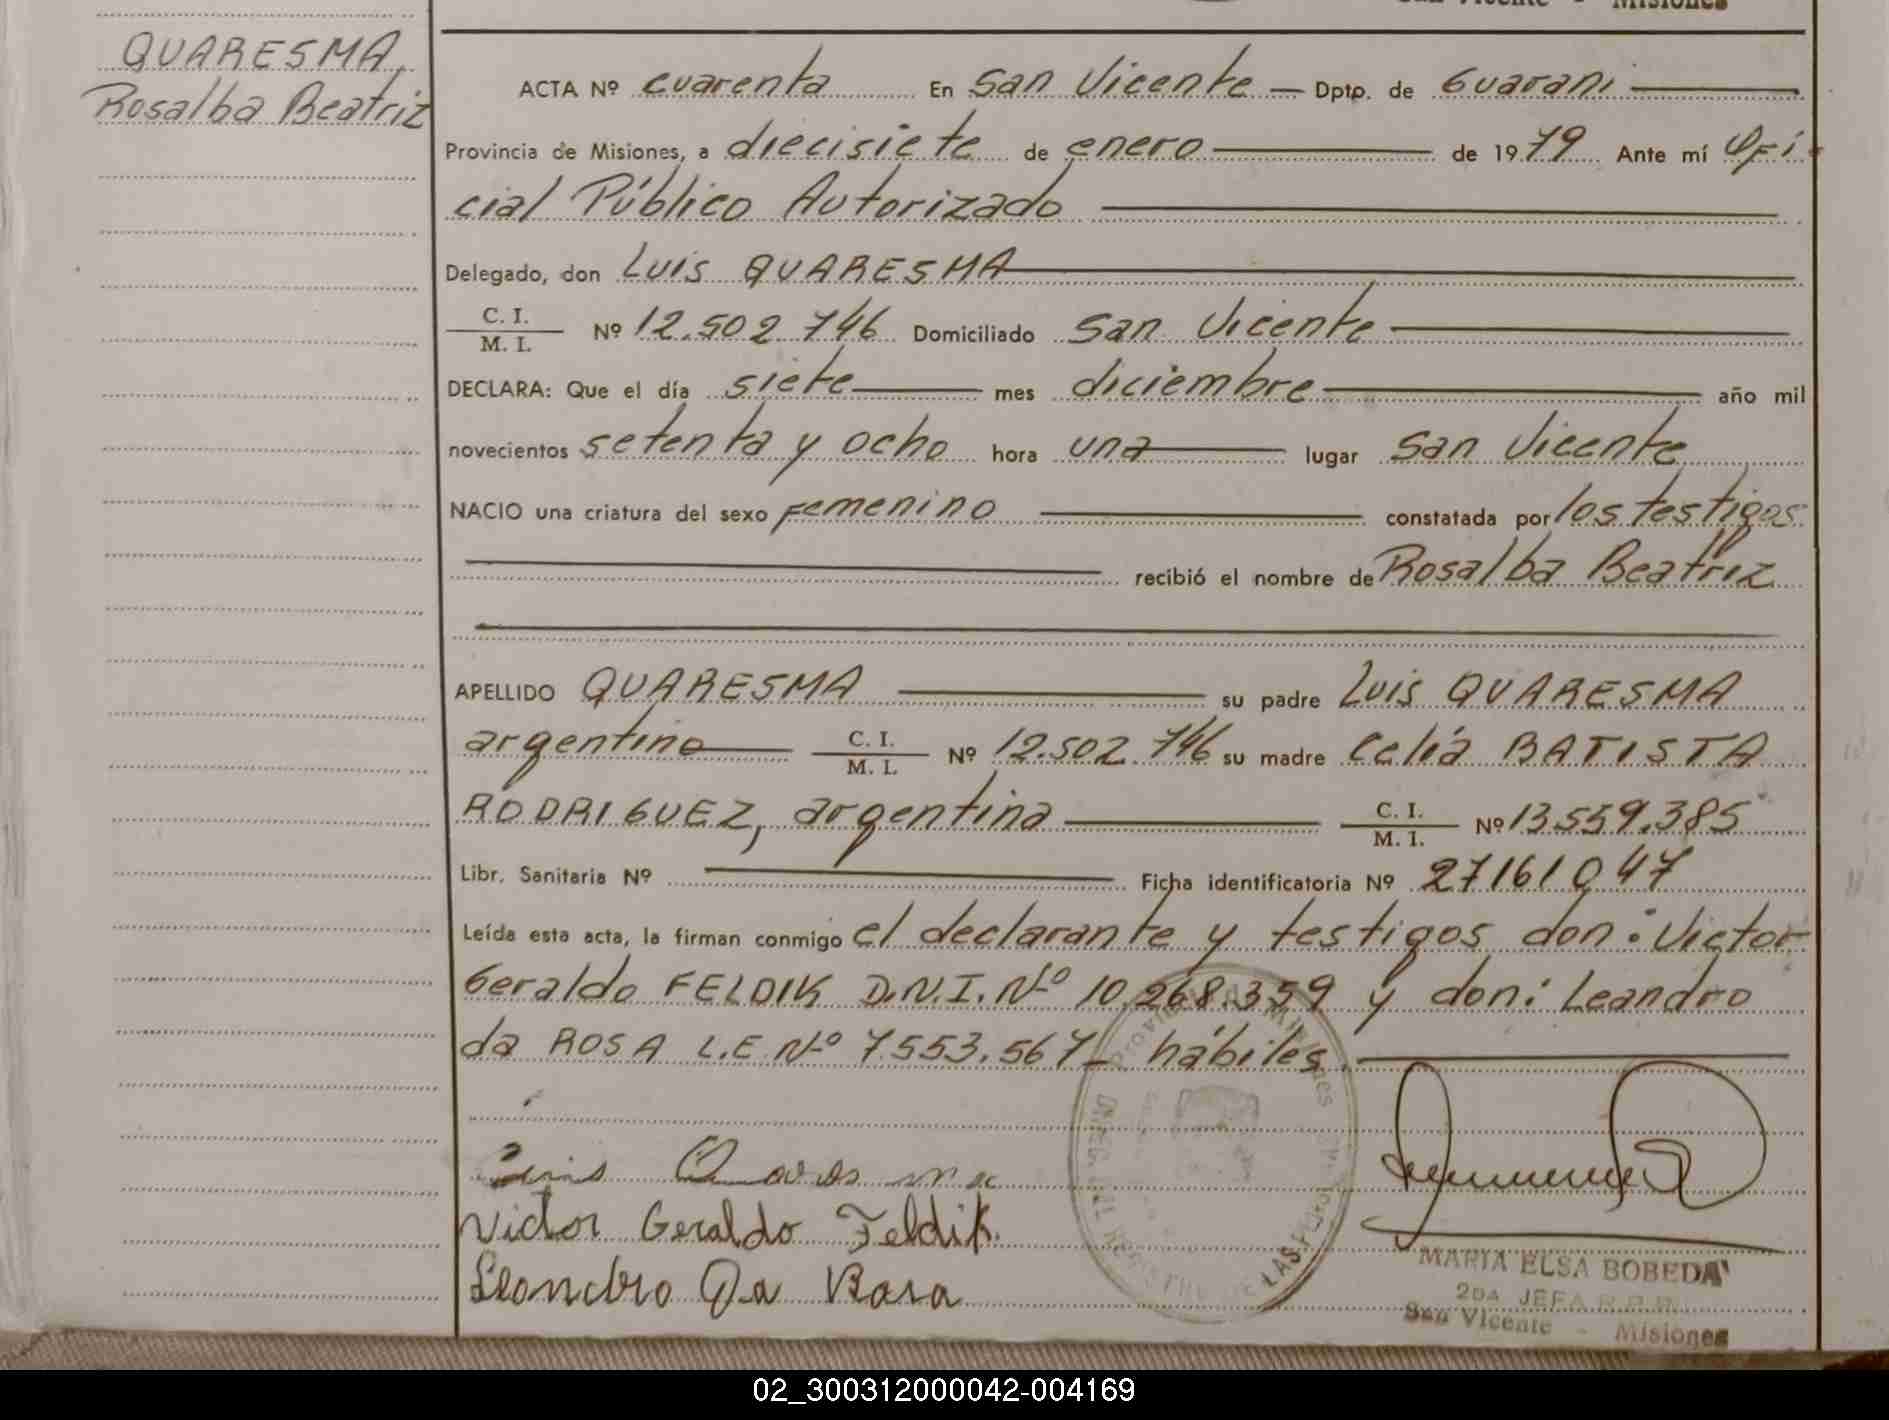 San Vicente - Misiones
QUARESMA,
Rosalba Beatriz
ACTA Nº cuarenta En San Vicente — Dpto. de Guaraní
Provincia de Misiones, a diecisiete de enero de 1979 Ante mí Ofi
cial Público Autorizado
Delegado, don Luis QUARESMA
C. I.
M. I. Nº 12.502.746 Domiciliado San Vicente
DECLARA: Que el día siete mes diciembre año mil
novecientos setenta y ocho hora una lugar San Vicente
NACIO una criatura del sexo femenino constatada por los testigos
recibió el nombre de Rosalba Beatriz
APELLIDO QUARESMA su padre Luis QUARESMA
argentino C. I.
M. I. Nº 12.502.746 su madre Celia BATISTA
RODRIGUEZ, argentina C. I.
M. I. Nº 13.559.385
Libr. Sanitaria Nº Ficha identificatoria Nº 27161047
Leída esta acta, la firman conmigo el declarante y testigos don: Victor
Geraldo FELDIK D.N.I. Nº 10.268.359 y don: Leandro
da ROSA L.E. Nº 7.553.567 hábiles.
Luis Quaresma
Victor Geraldo Feldik.
Leandro Da Rosa
Provincia de Misiones
MARIA ELSA BOBEDA
2DA JEFA R.P.P.
San Vicente - Misiones
02_300312000042-004169